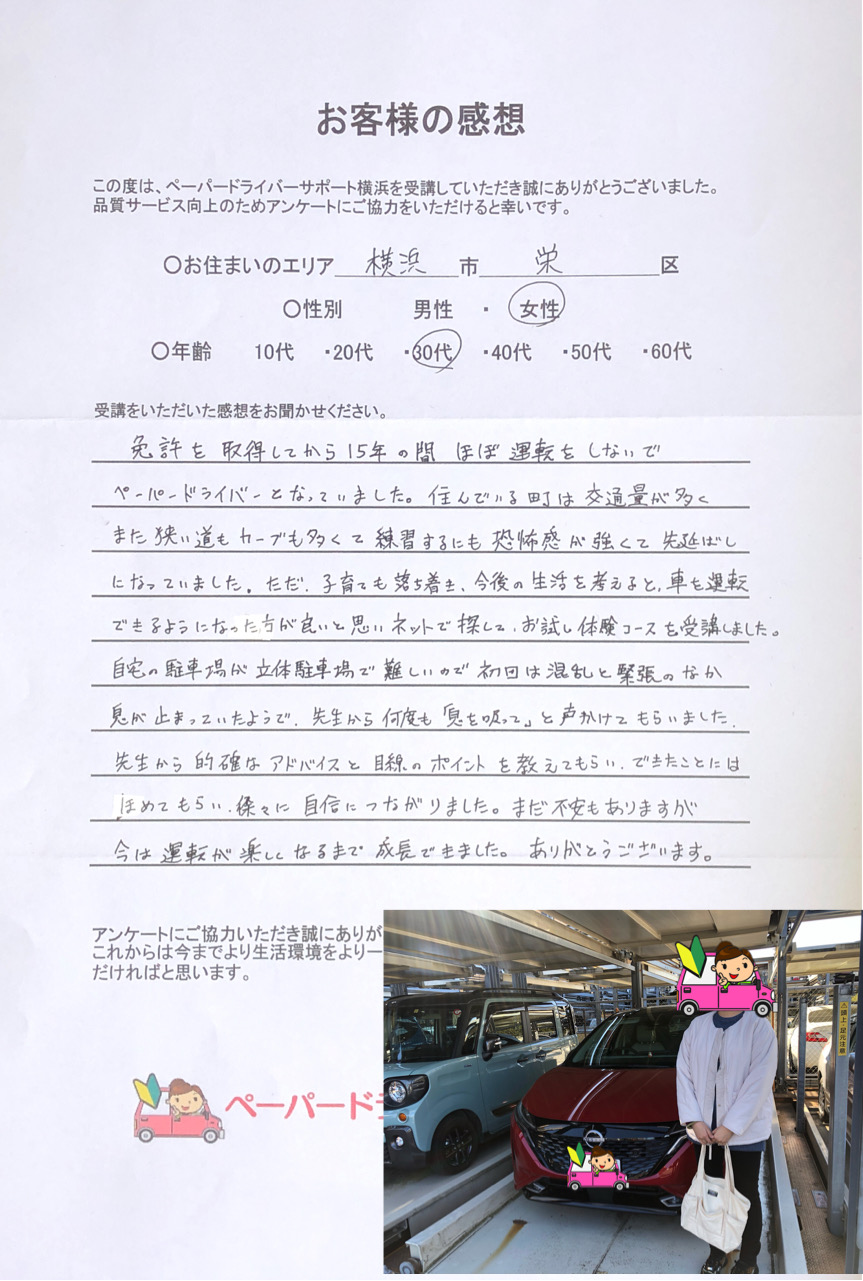 お客様の感想
この度は、ペーパードライバーサポート横浜を受講していただき誠にありがとうございました。
品質サービス向上のためアンケートにご協力をいただけると幸いです。
〇お住まいのエリア 横浜 市 栄 区
〇性別 男性 ・ 女性
〇年齢 10代 ・20代 ・30代 ・40代 ・50代 ・60代
受講をいただいた感想をお聞かせください。
免許を取得してから15年の間 ほぼ運転をしないで
ペーパードライバーとなっていました。住んでいる町は交通量が多く
また狭い道もカーブも多くて練習するにも恐怖感が強くて先延ばし
になっていました。ただ、子育ても落ち着き、今後の生活を考えると、車も運転
できるようになった方が良いと思いネットで探して、お試し体験コースを受講しました。
自宅の駐車場が立体駐車場で難しいので初回は混乱と緊張のなか
息が止まっていたようで、先生から何度も「息を吸って」と声かけてもらいました。
先生から的確なアドバイスと目線のポイントを教えてもらい、できたことには
ほめてもらい、徐々に自信につながりました。まだ不安もありますが
今は運転が楽しくなるまで成長できました。ありがとうございます。
アンケートにご協力いただき誠にありが
これからは今までより生活環境をより一
だければと思います。
ペーパード
頭上・足元注意